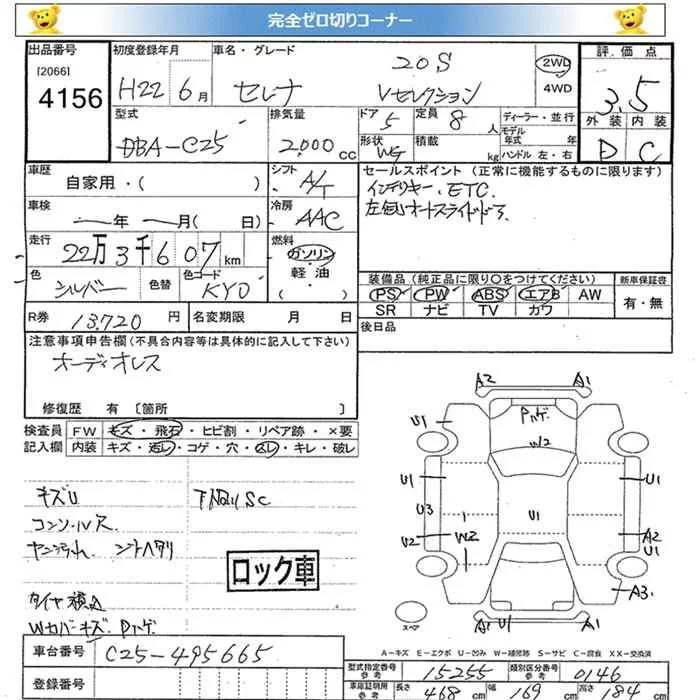 完全ゼロ切りコーナー
出品番号 [2066] 4156
初度登録年月 H22年 6月
車名・グレード セレナ 20S Vセレクション
2WD
4WD
評価点 3.5
外装 D 内装 C
型式 DBA-C25
排気量 2,000 cc
ドア 5 定員 8人
形状 WG 積載 kg
ディーラー・並行
モデル年式 年
ハンドル 左・右
車歴 自家用・( )
シフト A/T
車検 年 月( 日)
冷房 AAC
走行 22万3千607km
燃料 ガソリン・軽油( )
色 シルバー 色替 色コード KY0
セールスポイント(正常に機能するものに限ります)
インテリキー、ETC、
左側オートスライドドア
装備品(純正品に限り○をつけてください)
PS PW ABS エアB AW
SR ナビ TV カワ
新車保証書
有・無
R券 13,720円 名変期限 月 日
後日品
注意事項申告欄(不具合内容等は具体的に記入して下さい)
オーディオレス
修復歴 有 [箇所 ]
検査員 FW キズ・飛石・ヒビ割・リペア跡・×要
記入欄 内装 キズ・汚レ・コゲ・穴・スレ・キレ・破レ
キズU
下廻りSC
コンソール穴
シートヘタリ
ロック車
Wカバーキズ Pカゲ
A2 A1
U1 Pカゲ
W2
U1 U1
U3 U1
U2 W2 A2
U1
A3
A1 U1 A1
スペア
A-キズ E-エクボ U-凹み W-補修跡 S-サビ C-腐食 XX-交換済
車台番号 C25-495665
登録番号
型式指定番号 参考 15255 類別区分番号 参考 0146
車庫証明用 参考 長さ 468cm 幅 169cm 高さ 184cm